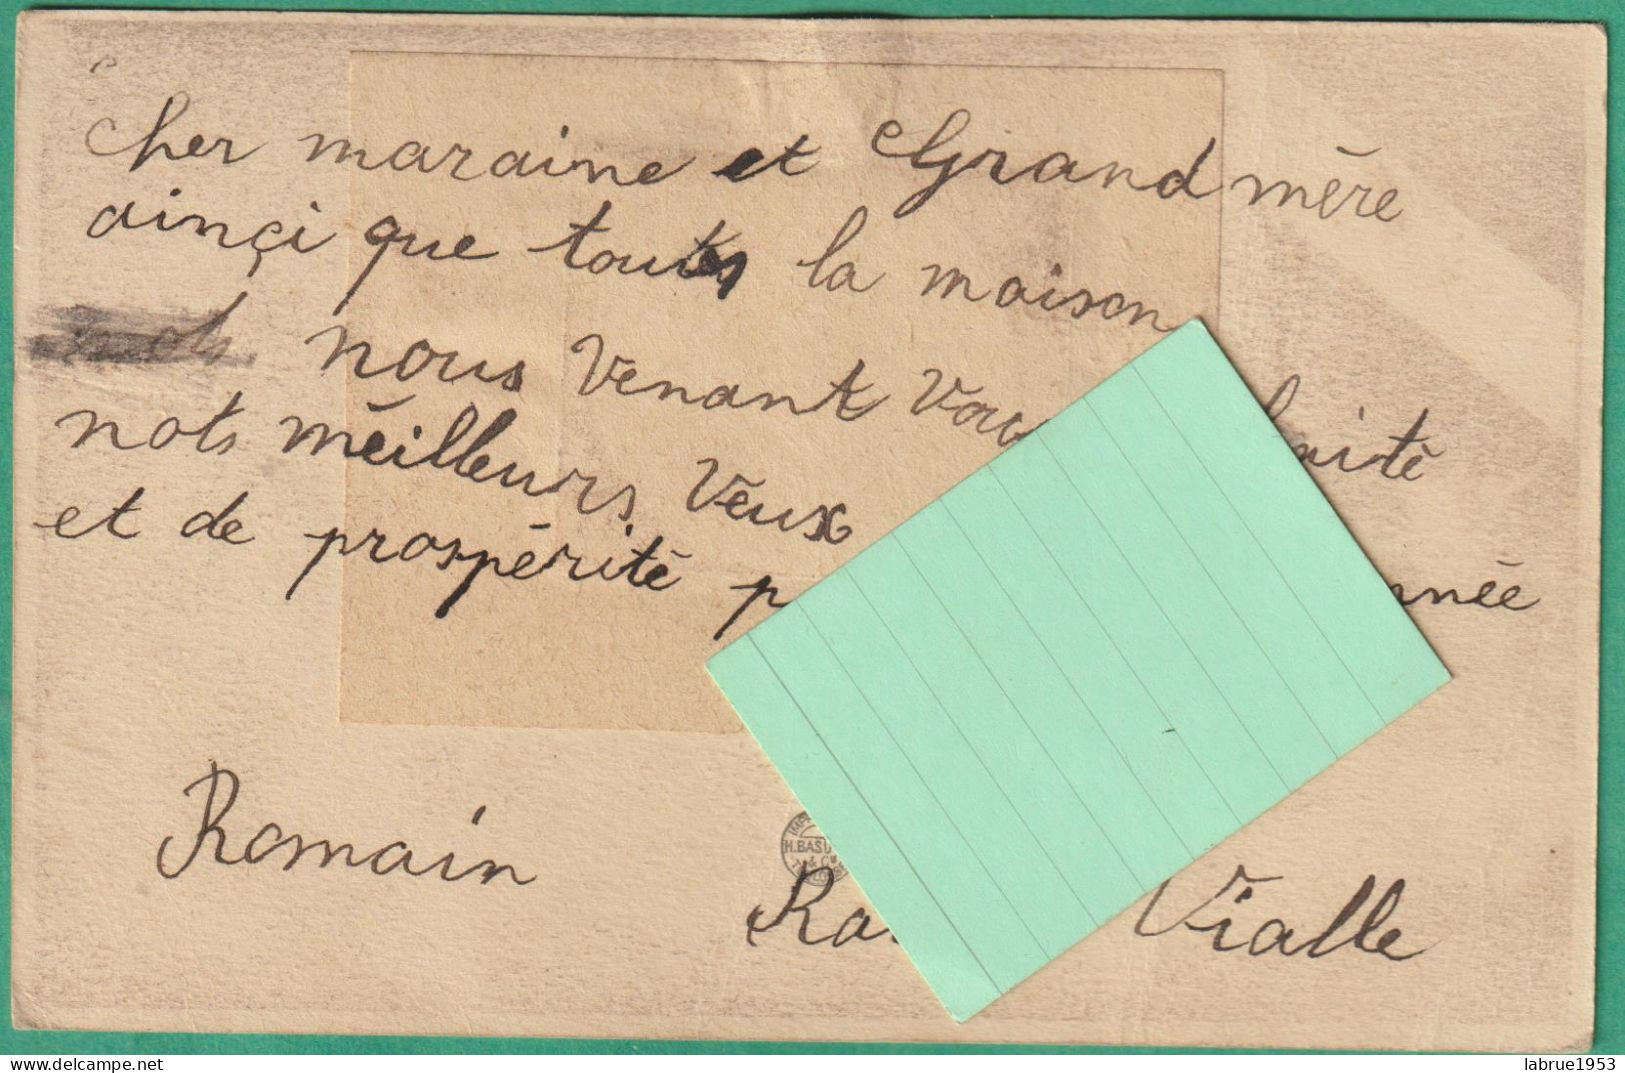 cher maraine et Grand mère
ainçi que toutes la maison
nots nous venant vous
nots méilleurs veux
et de prospérité
Romain
H.BAS
Vialle
www.delcampe.net
labrue1953